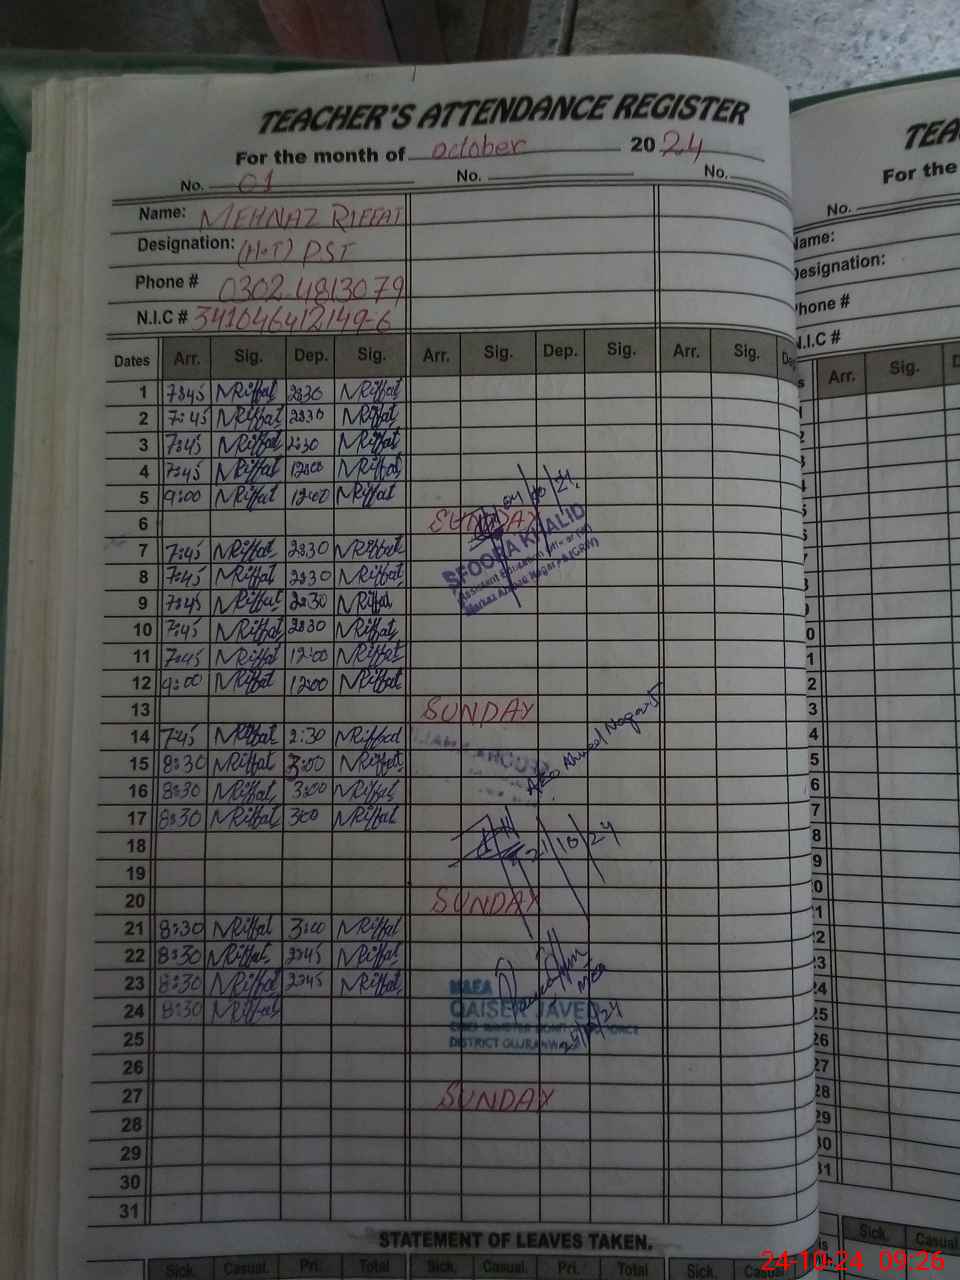 TEACHER'S ATTENDANCE REGISTER
For the month of October 2024
No. 01 No. No.
Name: MEHNAZ RIFFAT
Designation: (H.T) P.S.T
Phone # 0302-4813079
N.I.C # 341046412149-6
Dates Arr. Sig. Dep. Sig. Arr. Sig. Dep. Sig. Arr. Sig.
1 7:45 MRiffat 2:30 MRiffat
2 7:45 MRiffat 2:30 MRiffat
3 7:45 MRiffat 2:30 MRiffat
4 7:45 MRiffat 12:00 MRiffat
5 9:00 MRiffat 12:00 MRiffat
6 SUNDAY
7 7:45 MRiffat 2:30 MRiffat
8 7:45 MRiffat 2:30 MRiffat
9 7:45 MRiffat 2:30 MRiffat
10 7:45 MRiffat 2:30 MRiffat
11 7:45 MRiffat 12:00 MRiffat
12 9:00 MRiffat 12:00 MRiffat
13 SUNDAY
14 7:45 MRiffat 2:30 MRiffat
15 8:30 MRiffat 3:00 MRiffat
16 8:30 MRiffat 3:00 MRiffat
17 8:30 MRiffat 3:00 MRiffat
18
19
20 SUNDAY
21 8:30 MRiffat 3:00 MRiffat
22 8:30 MRiffat 2:45 MRiffat
23 8:30 MRiffat 2:45 MRiffat
24 8:30 MRiffat
25
26
27 SUNDAY
28
29
30
31
SFOORA KHALID
Assistant Education Officer
AEO Ahmad Nagar-5
21/10/24
M&EA
QAISER JAVED
DISTRICT GUJRANWALA
STATEMENT OF LEAVES TAKEN.
Sick. Casual. Pri. Total Sick. Casual. Pri. Total Sick. Casual
TEA
For the
No.
Name:
Designation:
Phone #
N.I.C #
Arr. Sig.
Sick. Casual
24-10-24 09:26